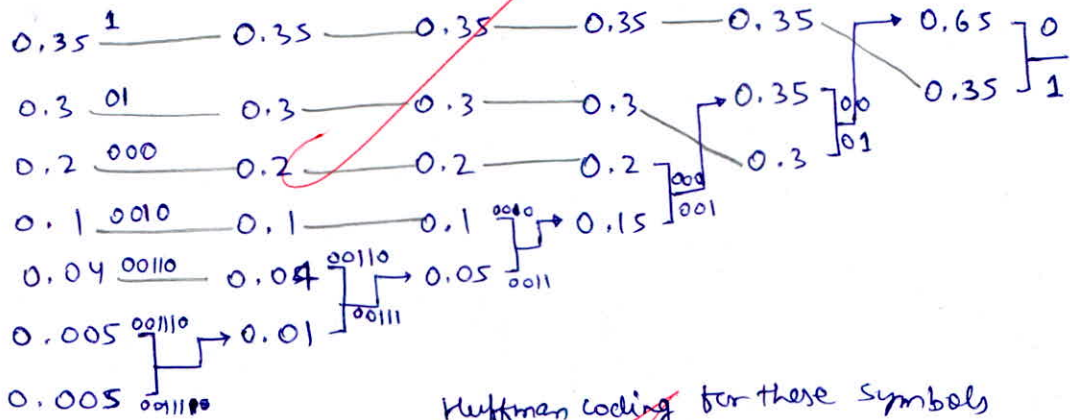 0.35 1 0.35 0.35 0.35 0.35 0.65 0
0.3 01 0.3 0.3 0.3 0.35 00 0.35 1
0.2 000 0.2 0.2 0.2 000 0.3 01
0.1 0010 0.1 0.1 0010 0.15 001
0.04 00110 0.04 00110 0.05 0011
0.005 001110 0.01 00111
0.005
Huffman coding for these symbols